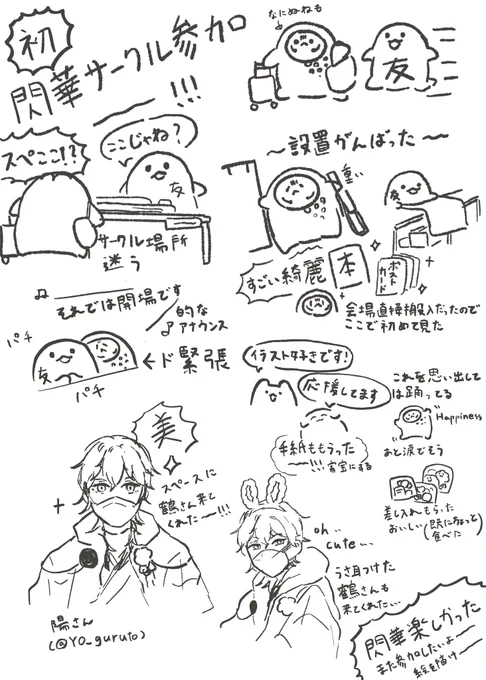 初
閃華サークル参加
!!!
なにぬねも
友
スペここ!?
ここじゃね?
友
サークル場所
迷う
〜設置がんばった〜
重い
友
すごい綺麗
本
ポスト
カード
会場直接搬入だったので
ここで初めて見た
♫
それでは開場です
的な
♪アナウンス
パチ
友
パチ
←ド緊張
イラスト好きです!
応援してます
手紙ももらった
〜!!!家宝にする
これを思い出して
は踊ってる
Happiness
あと涙でもう
差し入れもらった
おいしい(既にちょっと
食べた)
美
スペースに
鶴さん来て
くれた〜!!!
陽さん
(@YO_guruto)
oh..
cute...
うさ耳つけた
鶴さんも
来てくれた…
閃華楽しかった
また参加したいよ〜
絵を描け〜